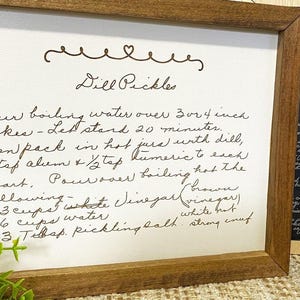 Dill Pickles
ur boiling water over 3 or 4 inch
kes - Let stand 20 minutes.
en pack in hot jars with dill,
tsp alum & 1/2 tsp tumeric to each
art. Pour over boiling hot the
llowing - brown
3 cups white Vinegar (vinegar)
6 cups water white not
3 Tbsp. pickling salt strong enuf